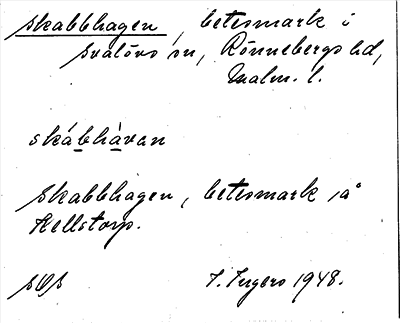 Skabbhagen, betesmark i
Svalövs sn, Rönnebergs hd,
Malm. l.
skábhàvan
Skabbhagen, betesmark på
Källstorp.
I. Ingers 1948.